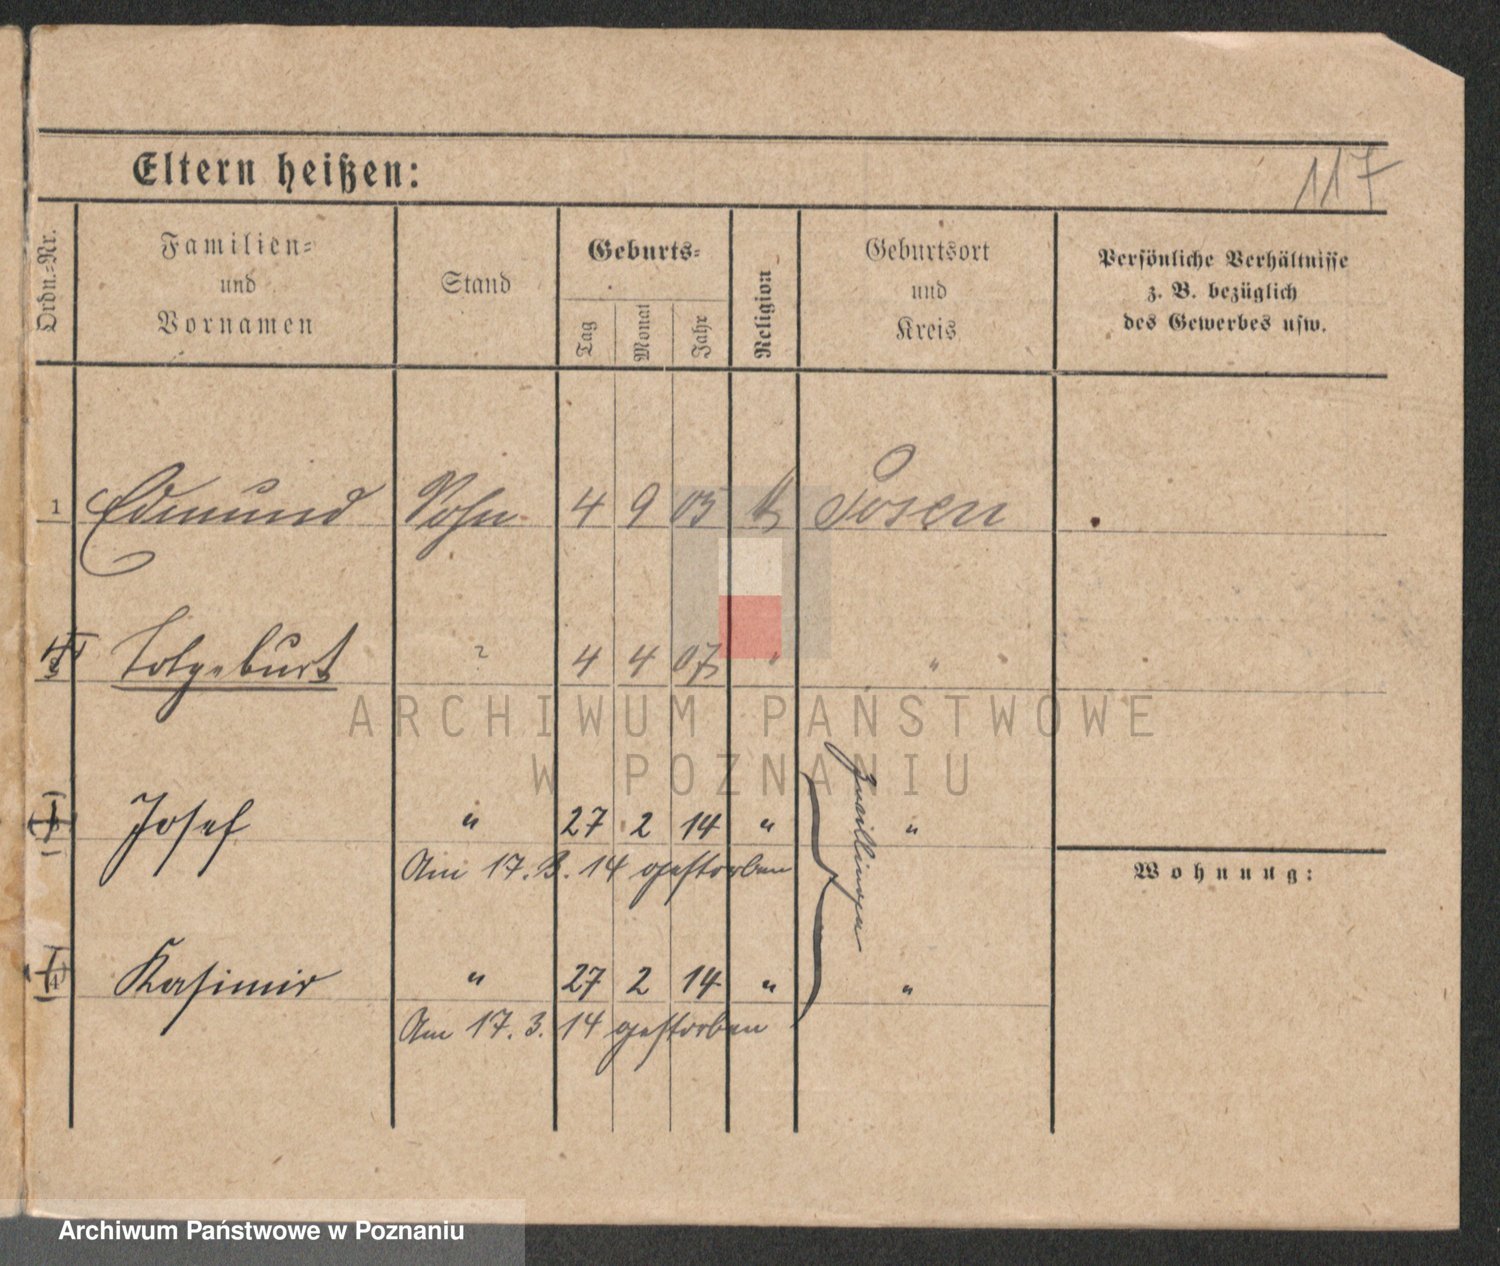 Eltern heißen:
117
Ordn.=Nr.
Familien=
und
Vornamen
Stand
Geburts=
Tag
Monat
Jahr
Religion
Geburtsort
und
Kreis
Persönliche Verhältnisse
z. B. bezüglich
des Gewerbes usw.
1 Edmund Sohn 4 9 05 k Posen
Totgeburt ? 4 4 07 " "
ARCHIWUM PAŃSTWOWE
W POZNANIU
3 Josef " 27 2 14 " "
Am 17. 3. 14 gestorben
Zwillinge
Wohnung:
4 Kasimir " 27 2 14 " "
Am 17. 3. 14 gestorben
Archiwum Państwowe w Poznaniu